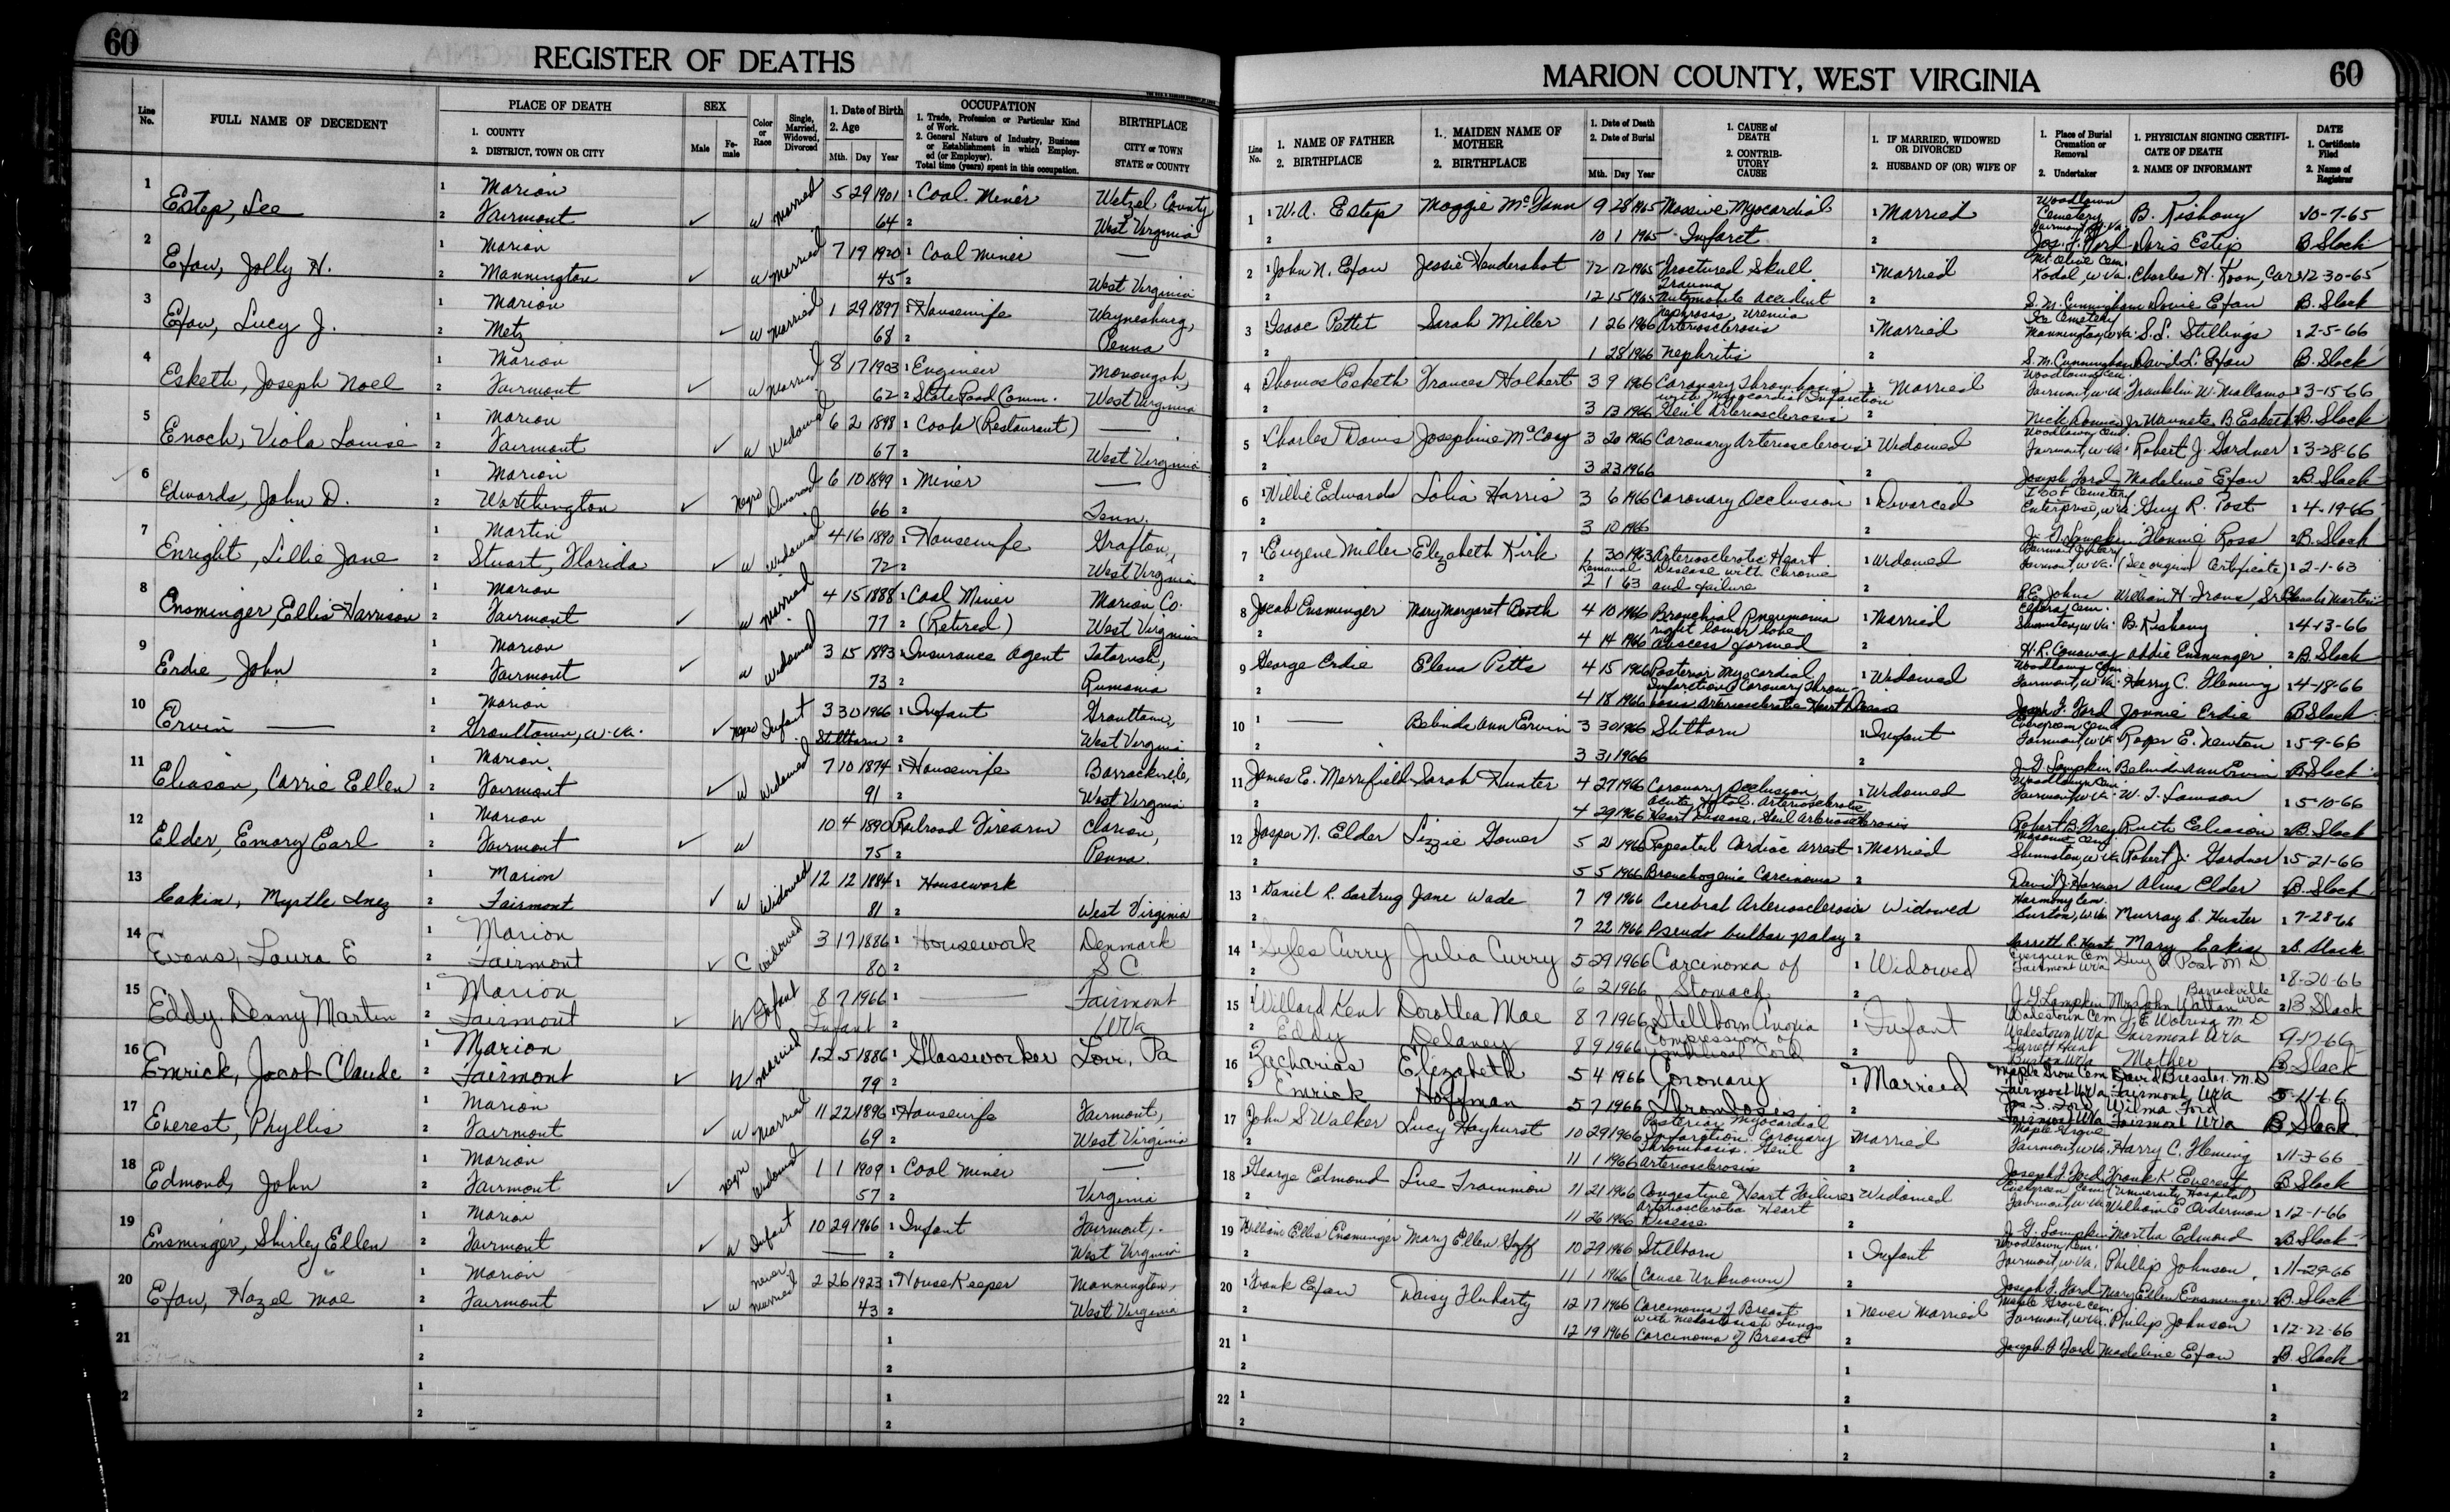 60
REGISTER OF DEATHS
Line No.
FULL NAME OF DECEDENT
PLACE OF DEATH
1. COUNTY
2. DISTRICT, TOWN OR CITY
SEX
Male
Female
Color or Race
Single, Married, Widowed, Divorced
1. Date of Birth
2. Age
Mth. Day Year
OCCUPATION
1. Trade, Profession or Particular Kind of Work.
2. General Nature of Industry, Business or Establishment in which Employed (or Employer).
Total time (years) spent in this occupation.
BIRTHPLACE
CITY or TOWN
STATE or COUNTY
1 Estep, Lee 1 Marion ✓ W Married 5 29 1901 1 Coal Miner Wetzel County
2 Fairmont 64 2 West Virginia
2 Efaw, Jolly H. 1 Marion ✓ W Married 7 19 1920 1 Coal Miner —
2 Mannington 45 2 West Virginia
3 Efaw, Lucy J. 1 Marion ✓ W Married 1 29 1897 1 Housewife Waynesburg,
2 Metz 68 2 Penna
4 Esketh, Joseph Noel 1 Marion ✓ W Married 8 17 1903 1 Engineer Monongah,
2 Fairmont 62 2 State Road Comm. West Virginia
5 Enoch, Viola Louise 1 Marion ✓ W Widowed 6 2 1898 1 Cook (Restaurant) —
2 Fairmont 67 2 West Virginia
6 Edwards, John D. 1 Marion ✓ Negro Divorced 6 10 1899 1 Miner —
2 Worthington 66 2 Tenn.
7 Enright, Lillie Jane 1 Martin ✓ W Widowed 4 16 1890 1 Housewife Grafton,
2 Stuart, Florida 72 2 West Virginia
8 Ensminger, Ellis Harrison 1 Marion ✓ W Married 4 15 1888 1 Coal Miner Marion Co.
2 Fairmont 77 2 (Retired) West Virginia
9 Erdie, John 1 Marion ✓ W Widowed 3 15 1893 1 Insurance Agent
2 Fairmont 73 2 Rumania
10 Ervin — 1 Marion ✓ Negro Infant 3 30 1966 1 Infant Granttown,
2 Granttown, W. Va. Stillborn 2 West Virginia
11 Eliason, Carrie Ellen 1 Marion ✓ W Widowed 7 10 1874 1 Housewife Barrackville,
2 Fairmont 91 2 West Virginia
12 Elder, Emory Earl 1 Marion ✓ W 10 4 1890 Railroad Fireman Clarion,
2 Fairmont 75 2 Penna.
13 Eakin, Myrtle Inez 1 Marion ✓ W Widowed 12 12 1884 1 Housework
2 Fairmont 81 2 West Virginia
14 Evans, Laura E 1 Marion ✓ C Widowed 3 17 1886 1 Housework Denmark
2 Fairmont 80 2 S C
15 Eddy, Denny Martin 1 Marion ✓ W Infant 8 7 1966 1 — Fairmont
2 Fairmont Infant 2 WVa
16 Emrick, Jacob Claude 1 Marion ✓ W Married 12 5 1886 1 Glassworker Pa
2 Fairmont 79 2
17 Everest, Phyllis 1 Marion ✓ W Married 11 22 1896 1 Housewife Fairmont,
2 Fairmont 69 2 West Virginia
18 Edmond, John 1 Marion ✓ Negro Widowed 1 1 1909 1 Coal Miner —
2 Fairmont 57 2 Virginia
19 Ensminger, Shirley Ellen 1 Marion ✓ W Infant 10 29 1966 1 Infant Fairmont,
2 Fairmont — 2 West Virginia
20 Efaw, Hazel Mae 1 Marion ✓ W Never Married 2 26 1923 1 House Keeper Mannington,
2 Fairmont 43 2 West Virginia
21 1 1
2 2
2 1 1
2 2
MARION COUNTY, WEST VIRGINIA
60
Line No.
1. NAME OF FATHER
2. BIRTHPLACE
1. MAIDEN NAME OF MOTHER
2. BIRTHPLACE
1. Date of Death
2. Date of Burial
Mth. Day Year
1. CAUSE of DEATH
2. CONTRIBUTORY CAUSE
1. IF MARRIED, WIDOWED OR DIVORCED
2. HUSBAND OF (OR) WIFE OF
1. Place of Burial Cremation or Removal
2. Undertaker
1. PHYSICIAN SIGNING CERTIFICATE OF DEATH
2. NAME OF INFORMANT
DATE
1. Certificate Filed
2. Name of Registrar
1 W. A. Estep Maggie McGann 9 28 1965 Massive Myocardial 1 Married Woodlawn Cemetery Fairmont, W. Va. B. Kishony 10-7-65
2 10 1 1965 Infarct 2 Jos. F. Ford Doris Estep B. Slack
2 John N. Efaw Jessie Hendershot 12 12 1965 Fractured Skull Trauma 1 Married Mt. Olive Cem. W. Va. Charles H. Koon, Cor 12-30-65
2 12 15 1965 Automobile Accident 2 S. M. Cunningham Efaw B. Slack
3 Isaac Pettit Sarah Miller 1 26 1966 Nephrosis, Uremia Arteriosclerosis 1 Married Ice Cemetery Mannington, W. Va. S. L. Stillings 1 2-5-66
2 1 28 1966 Nephritis 2 S. M. Cunningham David L. Efaw B. Slack
4 Thomas Esketh Frances Holbert 3 9 1966 Coronary Thrombosis with Myocardial Infarction 1 Married Woodlawn Cem. Fairmont, W. Va. Franklin W. Mallamo 3-15-66
2 3 13 1966 Genl Arteriosclerosis 2 B. Esketh B. Slack
5 Charles Davis Josephine McCoy 3 20 1966 Coronary Arteriosclerosis 1 Widowed Woodlawn Cem. Fairmont, W. Va. Robert J. Gardner 1 3-28-66
2 3 23 1966 2 Joseph Ford Madeline Efaw 2 B. Slack
6 Willie Edwards Harris 3 6 1966 Coronary Occlusion 1 Divorced I O O F Cemetery Enterprise, W. Va. Guy R. Post 1 4-19-66
2 3 10 1966 2 J. G. Lampkin Ross 2 B. Slack
7 Eugene Miller Elizabeth Kirk 1 30 1963 Arteriosclerotic Heart 1 Widowed Fairmont, W. Va. (See original Certificate) 1 2-1-63
2 Removal 2 1 63 Disease with Chronic and failure 2 R. E. Johns William H. Sr.
8 Jacob Ensminger Mary Margaret Booth 4 10 1966 Bronchial Pneumonia right lower lobe 1 Married Cem. Shinnston, W. Va. B. Kishony 1 4-13-66
2 4 14 1966 Abscess formed 2 H. R. Conaway Addie Ensminger 2 B. Slack
9 George Erdie Elena Pitts 4 15 1966 Posterior Myocardial Infarction Coronary Throm- 1 Widowed Woodlawn Cem. Fairmont, W. Va. Harry C. Fleming 1 4-18-66
2 4 18 1966 bosis Arteriosclerotic Heart Disease Joseph F. Ford Erdie B. Slack
10 1 — Belinda Ann Ervin 3 30 1966 Stillborn 1 Infant Evergreen Cem. Fairmont, W. Va. Roger E. Newton 1 5-9-66
2 3 31 1966 2 J. G. Lampkin Belinda Ann Ervin 2 B. Slack
11 James E. Merrifield Sarah Hunter 4 27 1966 Coronary Occlusion, acute, fatal. Arteriosclerotic 1 Widowed Woodlawn Cem. Fairmont, W. Va. W. T. Lawson 1 5-10-66
2 4 29 1966 Heart Disease, Genl Arteriosclerosis Robert B. Grey Ruth Eliason 2 B. Slack
12 Jasper N. Elder Lizzie Gower 5 2 1966 Repeated Cardiac Arrest 1 Married Masonic Cem. Shinnston, W. Va. Robert J. Gardner 1 5-21-66
2 5 5 1966 Bronchogenic Carcinoma 2 David J. Harmer Alma Elder B. Slack
13 1 Daniel R. Bartrug Jane Wade 7 19 1966 Cerebral Arteriosclerosis Widowed Harmony Cem. Burton, W. Va. Murray B. Hunter 1 7-28-66
2 7 22 1966 Pseudo bulbar palsy 2 Garrett R. Hunt Mary Eakin 2 B. Slack
14 1 Curry Julia Curry 5 29 1966 Carcinoma of 1 Widowed Evergreen Cem Fairmont WVa Guy R. Post M. D. 1 8-20-66
2 6 2 1966 Stomach 2 J. G. Lampkin Mrs John Barrackville WVa 2 B Slack
15 1 Willard Kent Dorothea Mae 8 7 1966 Stillborn Anoxia 1 Infant Wadestown Cem Wadestown WVa J. E. M D Fairmont WVa 9-17-66
2 Eddy Delaney 8 9 1966 Compression of Umbilical Cord 2 Garrett Hunt Burton WVa Mother B Slack
16 1 Zacharias Elizabeth 5 4 1966 Coronary 1 Married Maple Grove Cem Fairmont WVa David Bressler M. D Fairmont WVa 5-11-66
2 Emrick Hoffman 5 7 1966 Thrombosis 2 Jos. F. Ford Fairmont WVa Wilma Ford Fairmont WVa B Slack
17 John S Walker Lucy Hayhurst 10 29 1966 Posterior Myocardial Infarction Coronary Married Maple Grove Fairmont, W. Va. Harry C. Fleming 1 11-3-66
2 11 1 1966 Thrombosis. Genl Arteriosclerosis 2 Joseph F. Ford Frank K. Everest B Slack
18 George Edmond Sue Trammon 11 21 1966 Congestive Heart Failure Widowed Evergreen Cem Fairmont, W. Va. (University Hospital) William E. 1 12-1-66
2 11 26 1966 Arteriosclerotic Heart Disease 2 J. G. Lampkin Martha Edmond 2 B. Slack
19 William Ellis Ensminger Mary Ellen Goff 10 29 1966 Stillborn 1 Infant Woodlawn Cem. Fairmont, W. Va. Phillip Johnson 1 11-29-66
2 11 1 1966 (Cause Unknown) 2 Joseph F. Ford Mary Ellen Ensminger 2 B. Slack
20 1 Frank Efaw Daisy Fluharty 12 17 1966 Carcinoma of Breast with metastasis Lungs 1 Never Married Maple Grove Cem. Fairmont, W. Va. Philip Johnson 1 12-22-66
2 12 19 1966 Carcinoma of Breast 2 Joseph F. Ford Madeline Efaw 2 B. Slack
21 1 1 1
2 2 2
22 1 1 1
2 2 2